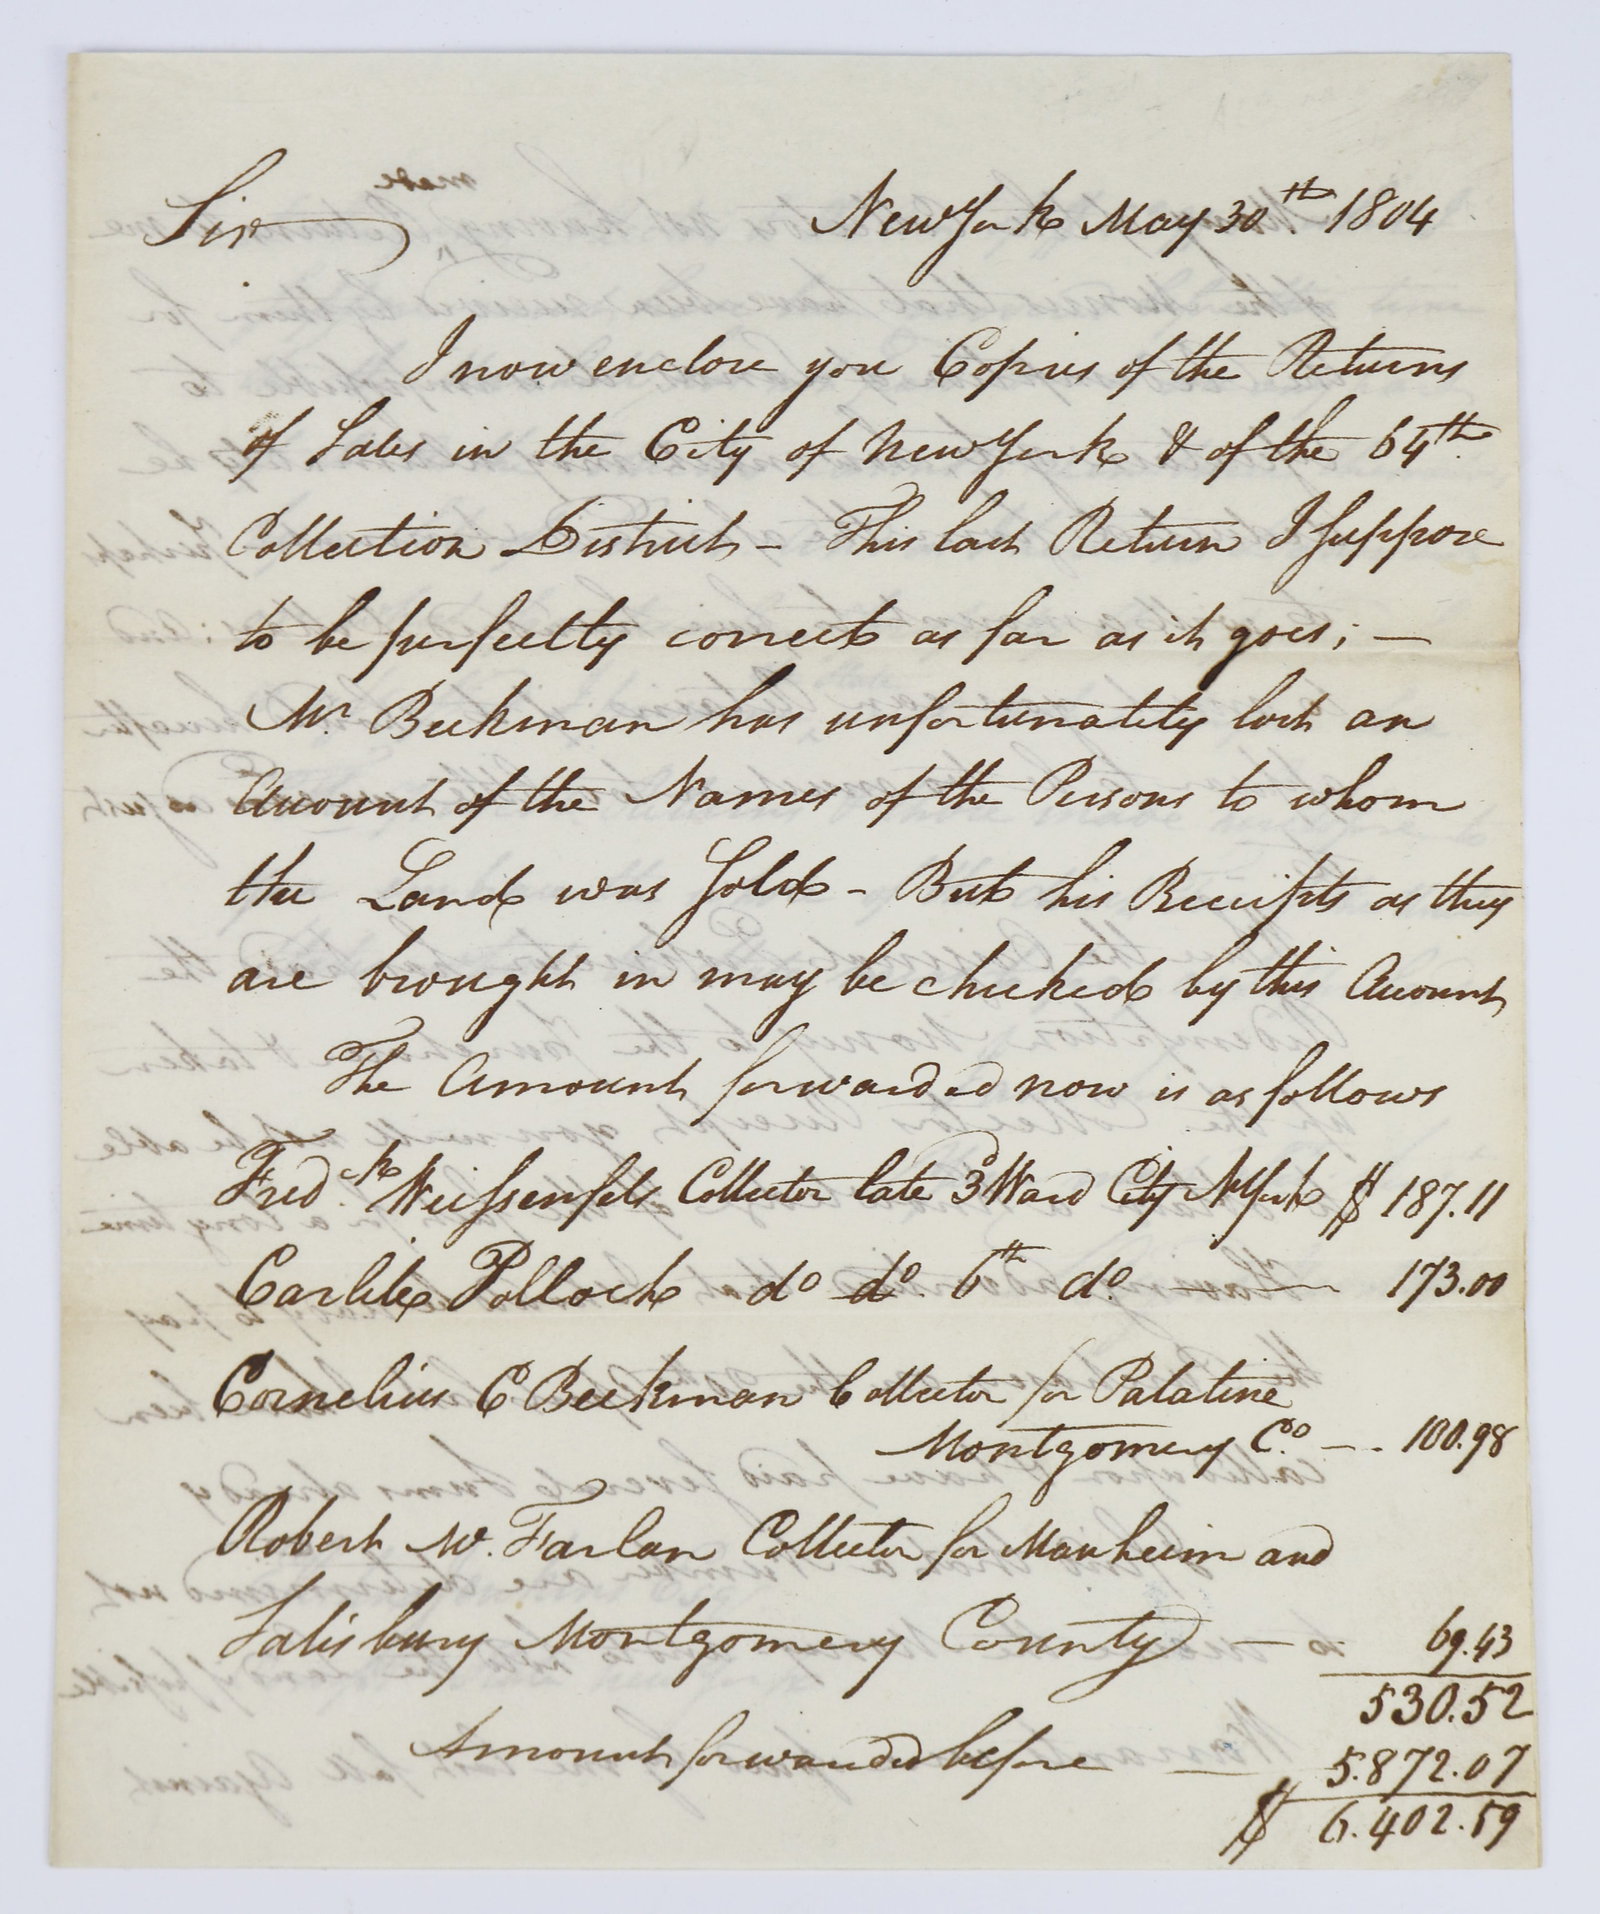 New York May 30th. 1804
Sir
I now enclose you Copies of the Returns
of Sales in the City of New York & of the 64th.
Collection District – This last Return I suppose
to be perfectly correct as far as it goes; —
Mr. Beekman has unfortunately lost an
Account of the Names of the Persons to whom
the Land was Sold – But his Receipts as they
are brought in may be checked by this Account
The Amount forwarded now is as follows
Fredck. Weissenfels Collector late 3d Ward City N York $ 187.11
Carlile Pollock do do. 6th do. — — 173.00
Cornelius C Beekman Collector for Palatine
Montgomery Co. — - 100.98
Robert Mc. Farlan Collector for Manheim and
Salisbury Montgomery County — 69.43
530.52
Amount forwarded before — 5.872.07
$ 6.402.59